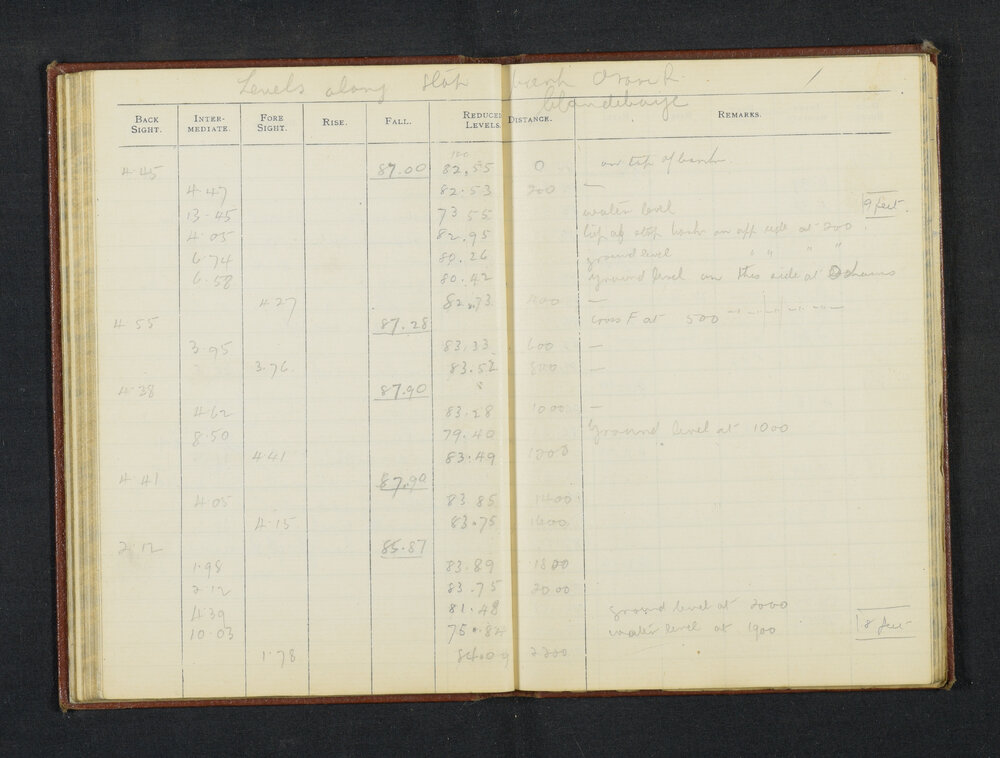 Levels along Slop bank
Clandeboye
BACK SIGHT. INTERMEDIATE. FORE SIGHT. RISE. FALL. REDUCED LEVELS. DISTANCE. REMARKS.
4.45 87.00 82.55 0 on top of bank.
4.47 82.53 200 —
13.45 73 55 water level 9 feet.
4.05 82.95 top of slop bank on opp side at 200
6.74 80.26 ground level " " " "
6.58 80.42 ground level on this side at 0 chains
4.27 82.73 400 —
4.55 87.28 cross F at 500
3.95 83.33 600 —
3.76 83.52 800 —
4.38 87.90
4.62 83.28 1000 —
8.50 79.40 Ground level at 1000
4.41 83.49 1200
4.41 87.90
4.05 83.85 1400 "
4.15 83.75 1600
2.12 85.87
1.98 83.89 1800
2.12 83.75 2000
4.39 81.48 ground level at 2000
10.03 75.84 water level at 1900 8 feet
1.78 84.09 2200